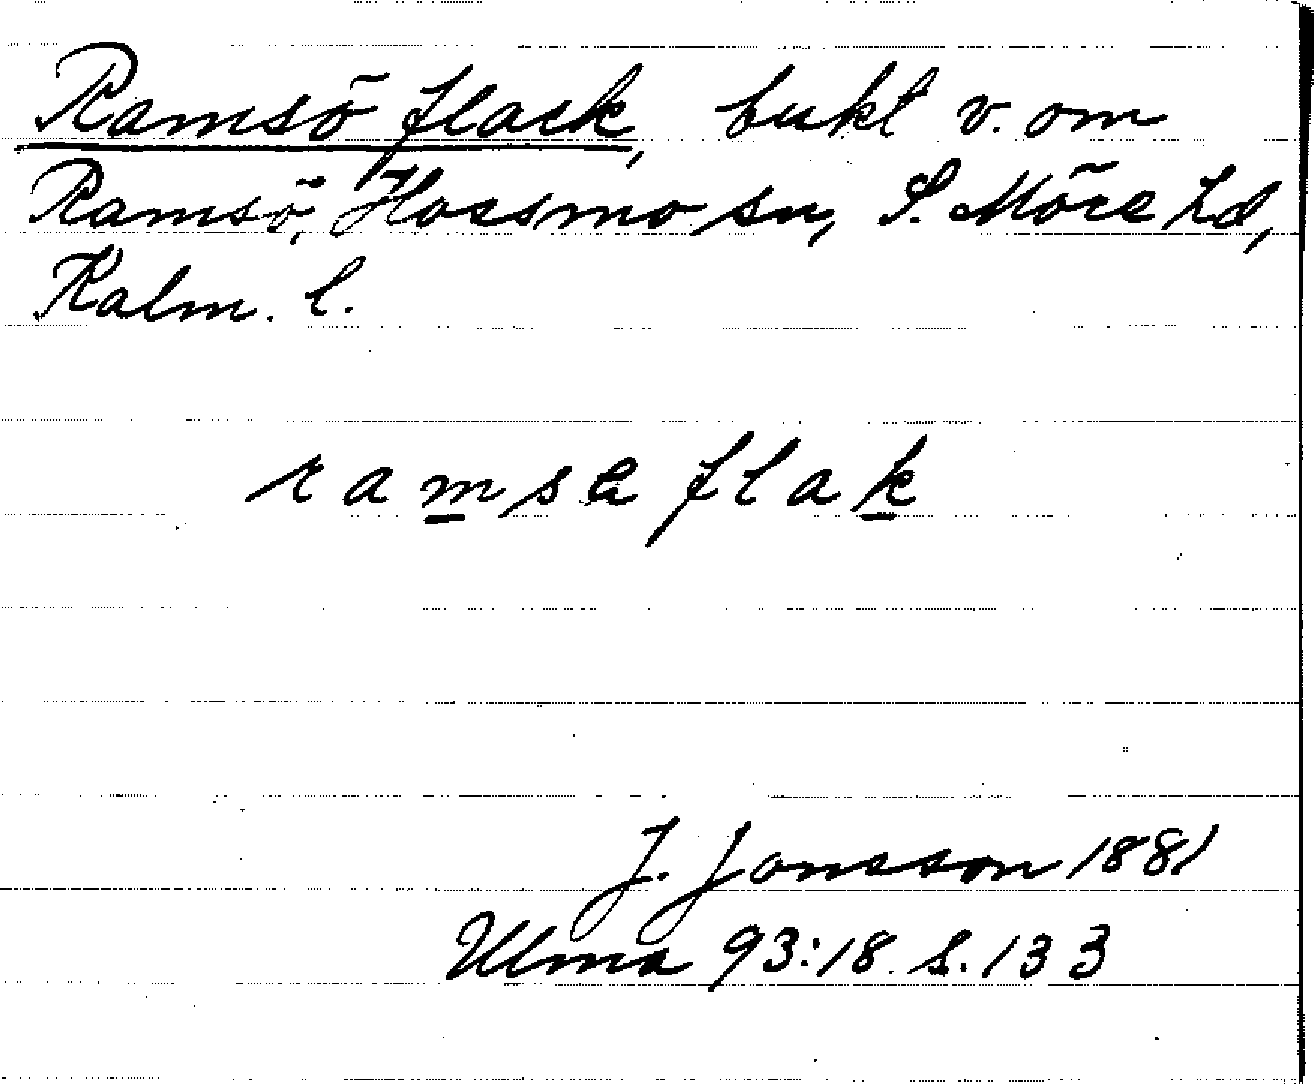 Ramsö flack, bukt v. om
Ramsö, Hossmo sn, S. Möre hd,
Kalm. l.
ramsa flak
J. Jonsson 1881
Ulma 93:18 s. 133